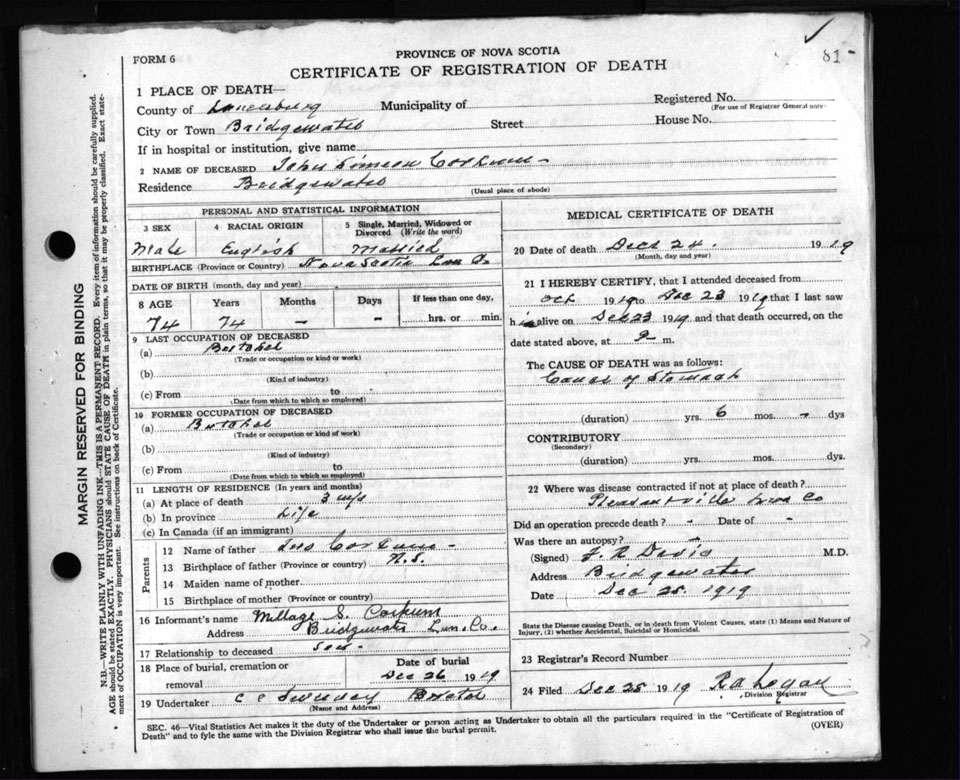 FORM 6
PROVINCE OF NOVA SCOTIA
81-
CERTIFICATE OF REGISTRATION OF DEATH
1 PLACE OF DEATH—
County of Lunenburg Municipality of Registered No.
(For use of Registrar General only)
City or Town Bridgewater Street House No.
If in hospital or institution, give name
2 NAME OF DECEASED John Simeon Corkum -
Residence Bridgewater
(Usual place of abode)
PERSONAL AND STATISTICAL INFORMATION
3 SEX 4 RACIAL ORIGIN 5 Single, Married, Widowed or Divorced (Write the word)
Male English Married
BIRTHPLACE (Province or Country) Nova Scotia Lun Co.
DATE OF BIRTH (month, day and year)
8 AGE Years Months Days If less than one day,
74 74 - - hrs. or min.
9 LAST OCCUPATION OF DECEASED
(a) Butcher
(Trade or occupation or kind or work)
(b)
(Kind of industry)
(c) From to
(Date from which to which so employed)
10 FORMER OCCUPATION OF DECEASED
(a) Butcher
(Trade or occupation or kind of work)
(b)
(Kind of industry)
(c) From to
(Date from which to which so employed)
11 LENGTH OF RESIDENCE (In years and months)
(a) At place of death 3
(b) In province Life
(c) In Canada (if an immigrant)
Parents
12 Name of father Corkum -
13 Birthplace of father (Province or country) N.S.
14 Maiden name of mother
15 Birthplace of mother (Province or country)
16 Informant's name Millage S. Corkum
Address Bridgewater Lun. Co.
17 Relationship to deceased son -
18 Place of burial, cremation or removal Date of burial
Dec 26 1919
19 Undertaker C Sweeney
(Name and Address)
MEDICAL CERTIFICATE OF DEATH
20 Date of death Dec 24. 1919
(Month, day and year)
21 I HEREBY CERTIFY, that I attended deceased from
Oct 1919 to Dec 23 1919 that I last saw
him alive on Dec 23 1919 and that death occurred, on the
date stated above, at m.
The CAUSE OF DEATH was as follows:
of Stomach
(duration) yrs. 6 mos. - dys
CONTRIBUTORY
(Secondary)
(duration) yrs. mos. dys.
22 Where was disease contracted if not at place of death?
Pleasantville Lun Co
Did an operation precede death? - Date of -
Was there an autopsy? -
(Signed) F. R Davis M.D.
Address Bridgewater
Date Dec 25. 1919
State the Disease causing Death, or in death from Violent Causes, state (1) Means and Nature of
Injury, (2) whether Accidental, Suicidal or Homicidal.
23 Registrar's Record Number
24 Filed Dec 25 1919 Logan
Division Registrar
SEC. 46—Vital Statistics Act makes it the duty of the Undertaker or person acting as Undertaker to obtain all the particulars required in the "Certificate of Registration of
Death" and to fyle the same with the Division Registrar who shall issue the burial permit. (OVER)
MARGIN RESERVED FOR BINDING
N.B.—WRITE PLAINLY WITH UNFADING INK—THIS IS A PERMANENT RECORD. Every item of information should be carefully supplied.
AGE should be stated EXACTLY. PHYSICIANS should STATE CAUSE OF DEATH in plain terms, so that it may be properly classified. Exact state-
ment of OCCUPATION is very important. See instructions on back of Certificate.